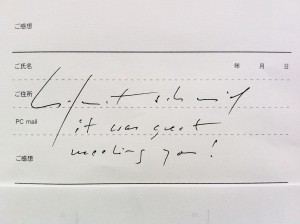 ご感想
ご氏名 年 月 日
ご住所
PC mail
it was great
ご感想
meeting you!